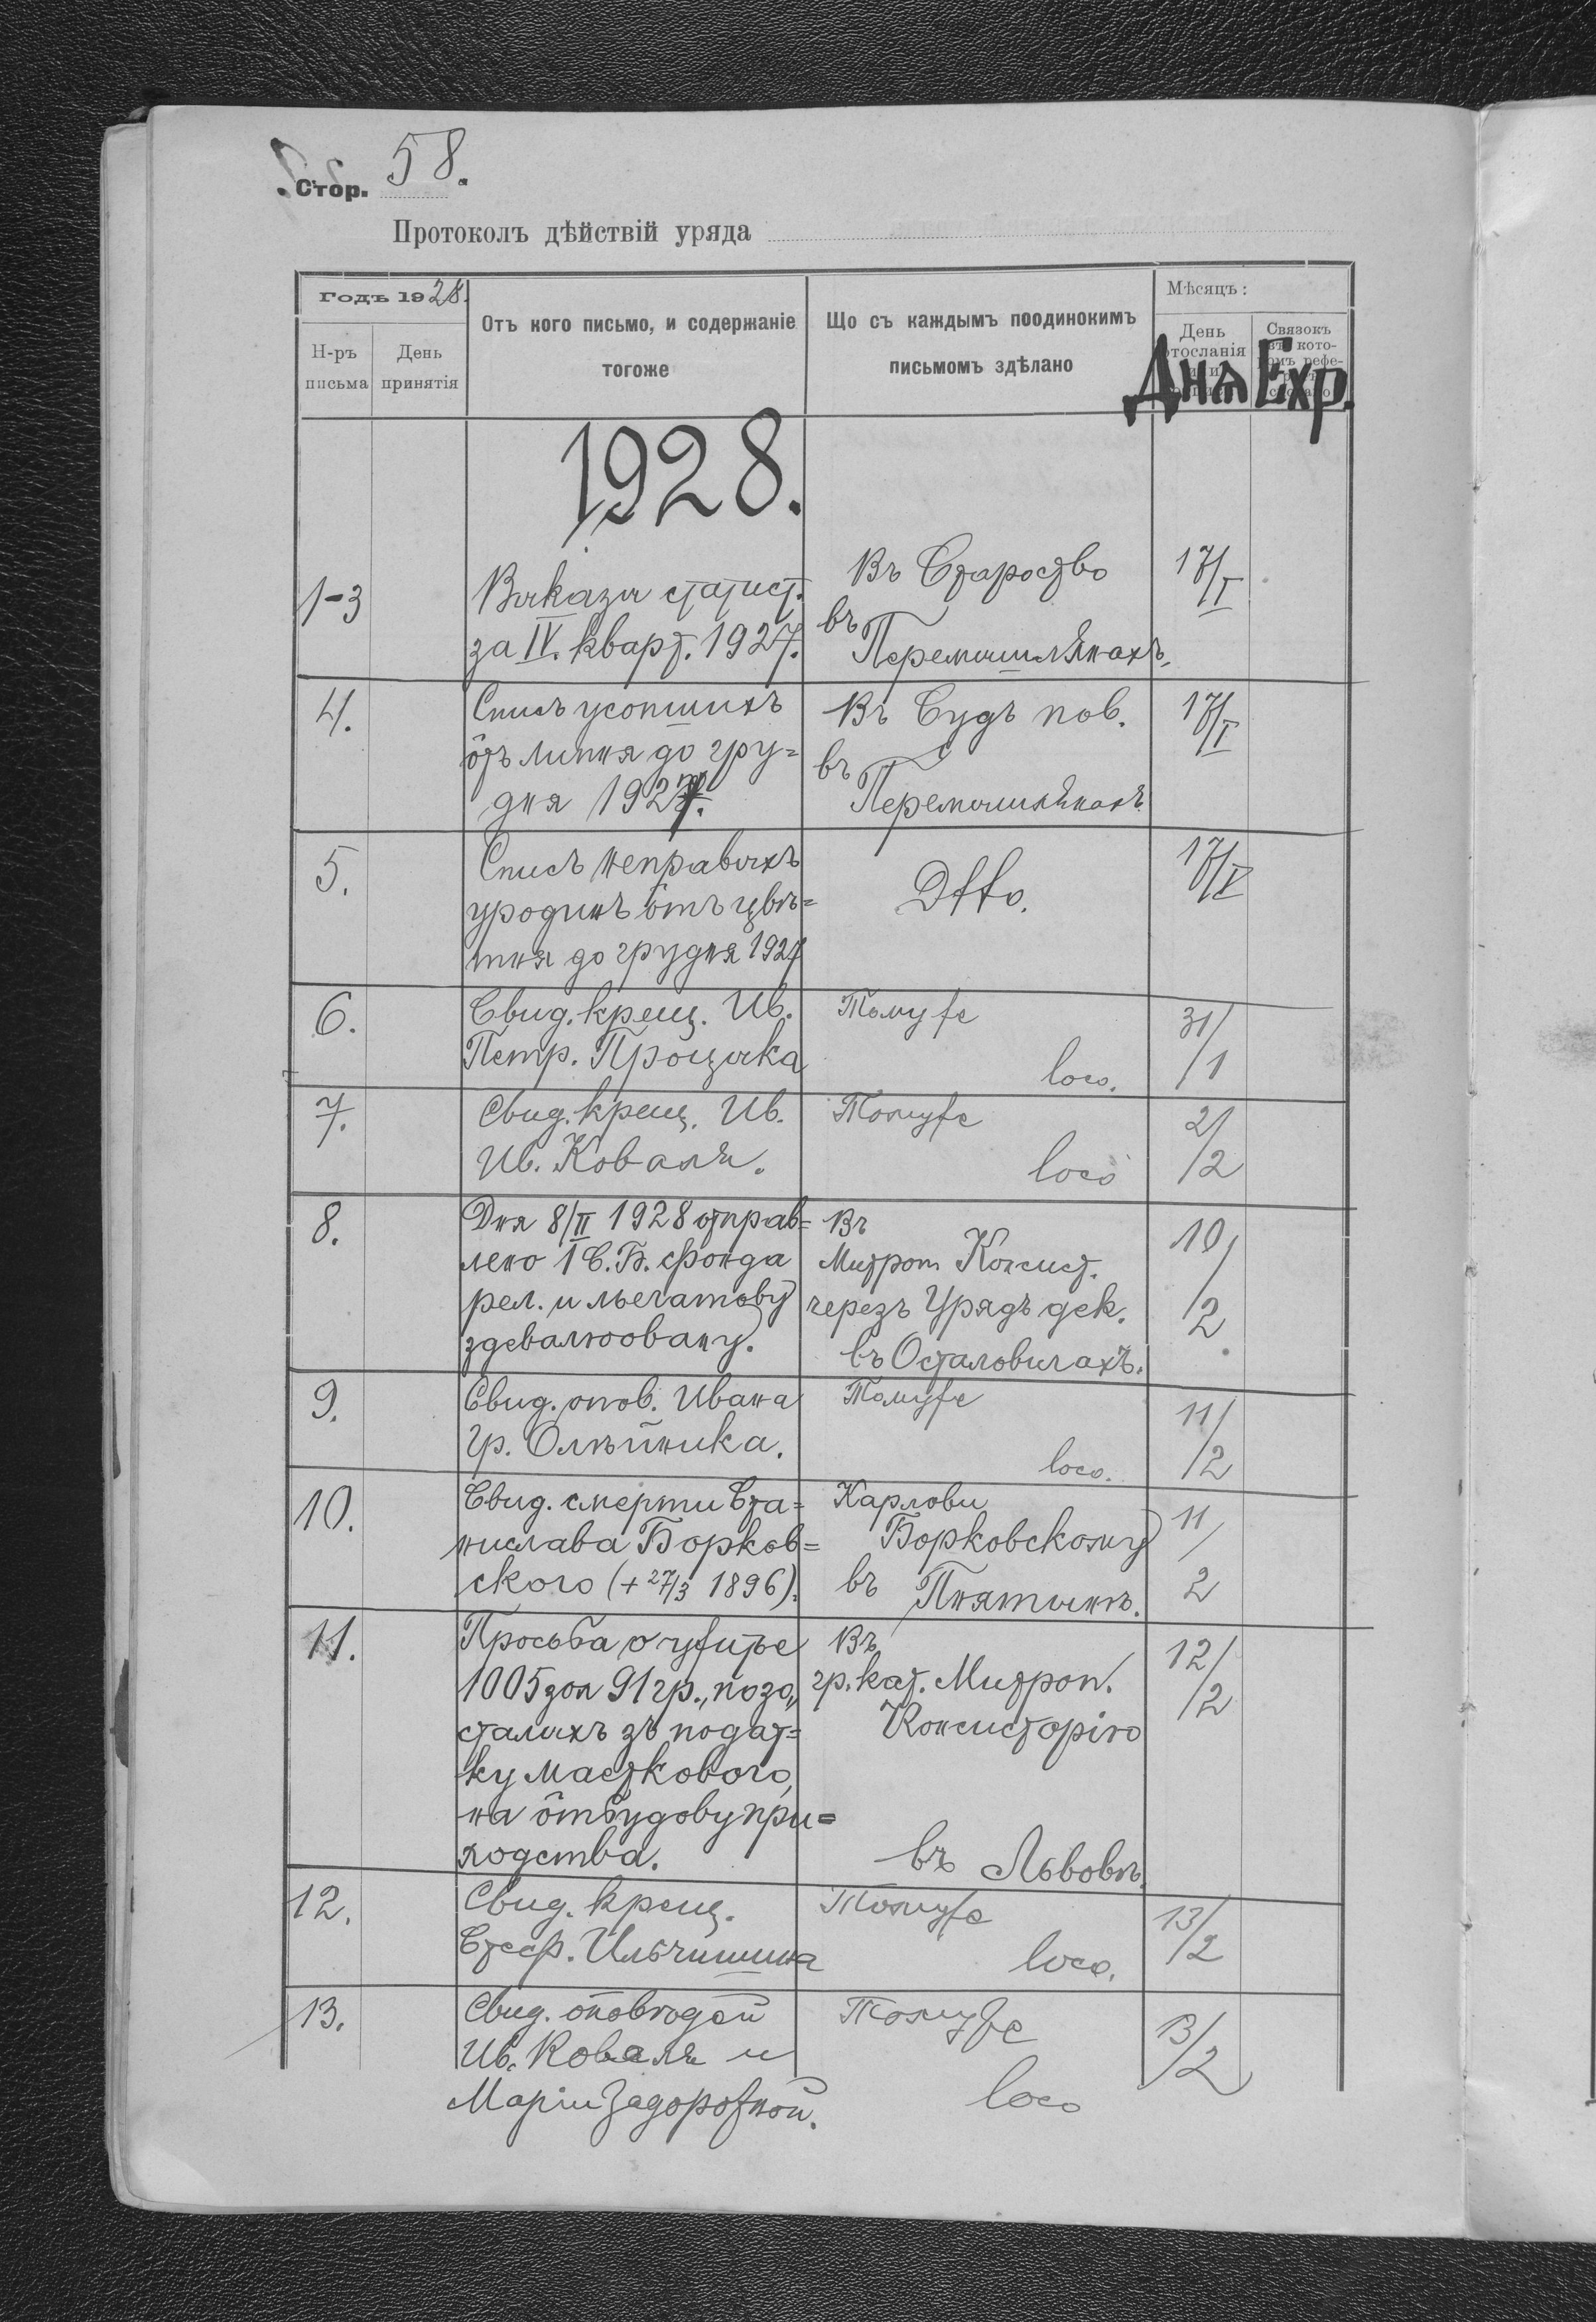 Стор. 58.
Протоколъ дѣйствій уряда
Годъ 1928.
Н-ръ письма
День принятія
Отъ кого письмо, и содержаніе тогоже
Що съ каждымъ поодинокимъ письмомъ здѣлано
Мѣсяцъ:
День отосланія
Связокъ
Дня Exp.
1928.
1-3
Выказы статист.
за IV. кварт. 1927.
Въ Староство
въ
Перемышлянахъ.
17/I
4.
Списъ усопшихъ
ôтъ липня до гру=
дня 1927.
Въ Судъ пов.
въ
Перемышлянахъ
17/I
5.
Списъ неправыхъ
уродинъ ôтъ цвѣ=
тня до грудня 1927
Dtto.
17/I
6.
Свид. крещ. Ив.
Петр. Процыка
Томуже
loco.
31/1
7.
Свид. крещ. Ив.
Ив. Коваля.
Томуже
loco
2/2
8.
Дня 8/II 1928 отправ=
лено 1 С.Б. фонда
рел. и легатову
здевалюовану.
Въ
Митроп Консист.
черезъ Урядъ дек.
въ Осталовичахъ.
10/2.
9.
Свид. опов. Ивана
Гр. Олѣйника.
Томуже
loco.
11/2
10.
Свид. смерти Ста=
нислава Борков=
ского (+27/3 1896).
Карлови
Борковскому
въ Пнятынѣ.
11/2
11.
Просьба о ужитье
1005 зол 91 гр., позо„
сталыхъ зъ подат=
ку маєткового,
на ôтбудову при=
ходства.
Въ
гр. кат. Митроп.
Консисторію
въ Львовѣ.
12/2
12.
Свид. крещ.
Стеф. Ильчишина
Томуже
loco.
13/2
13.
Свид. оповѣдей
Ив. Коваля и
Маріи Задорожной.
Томуже
loco
13/2